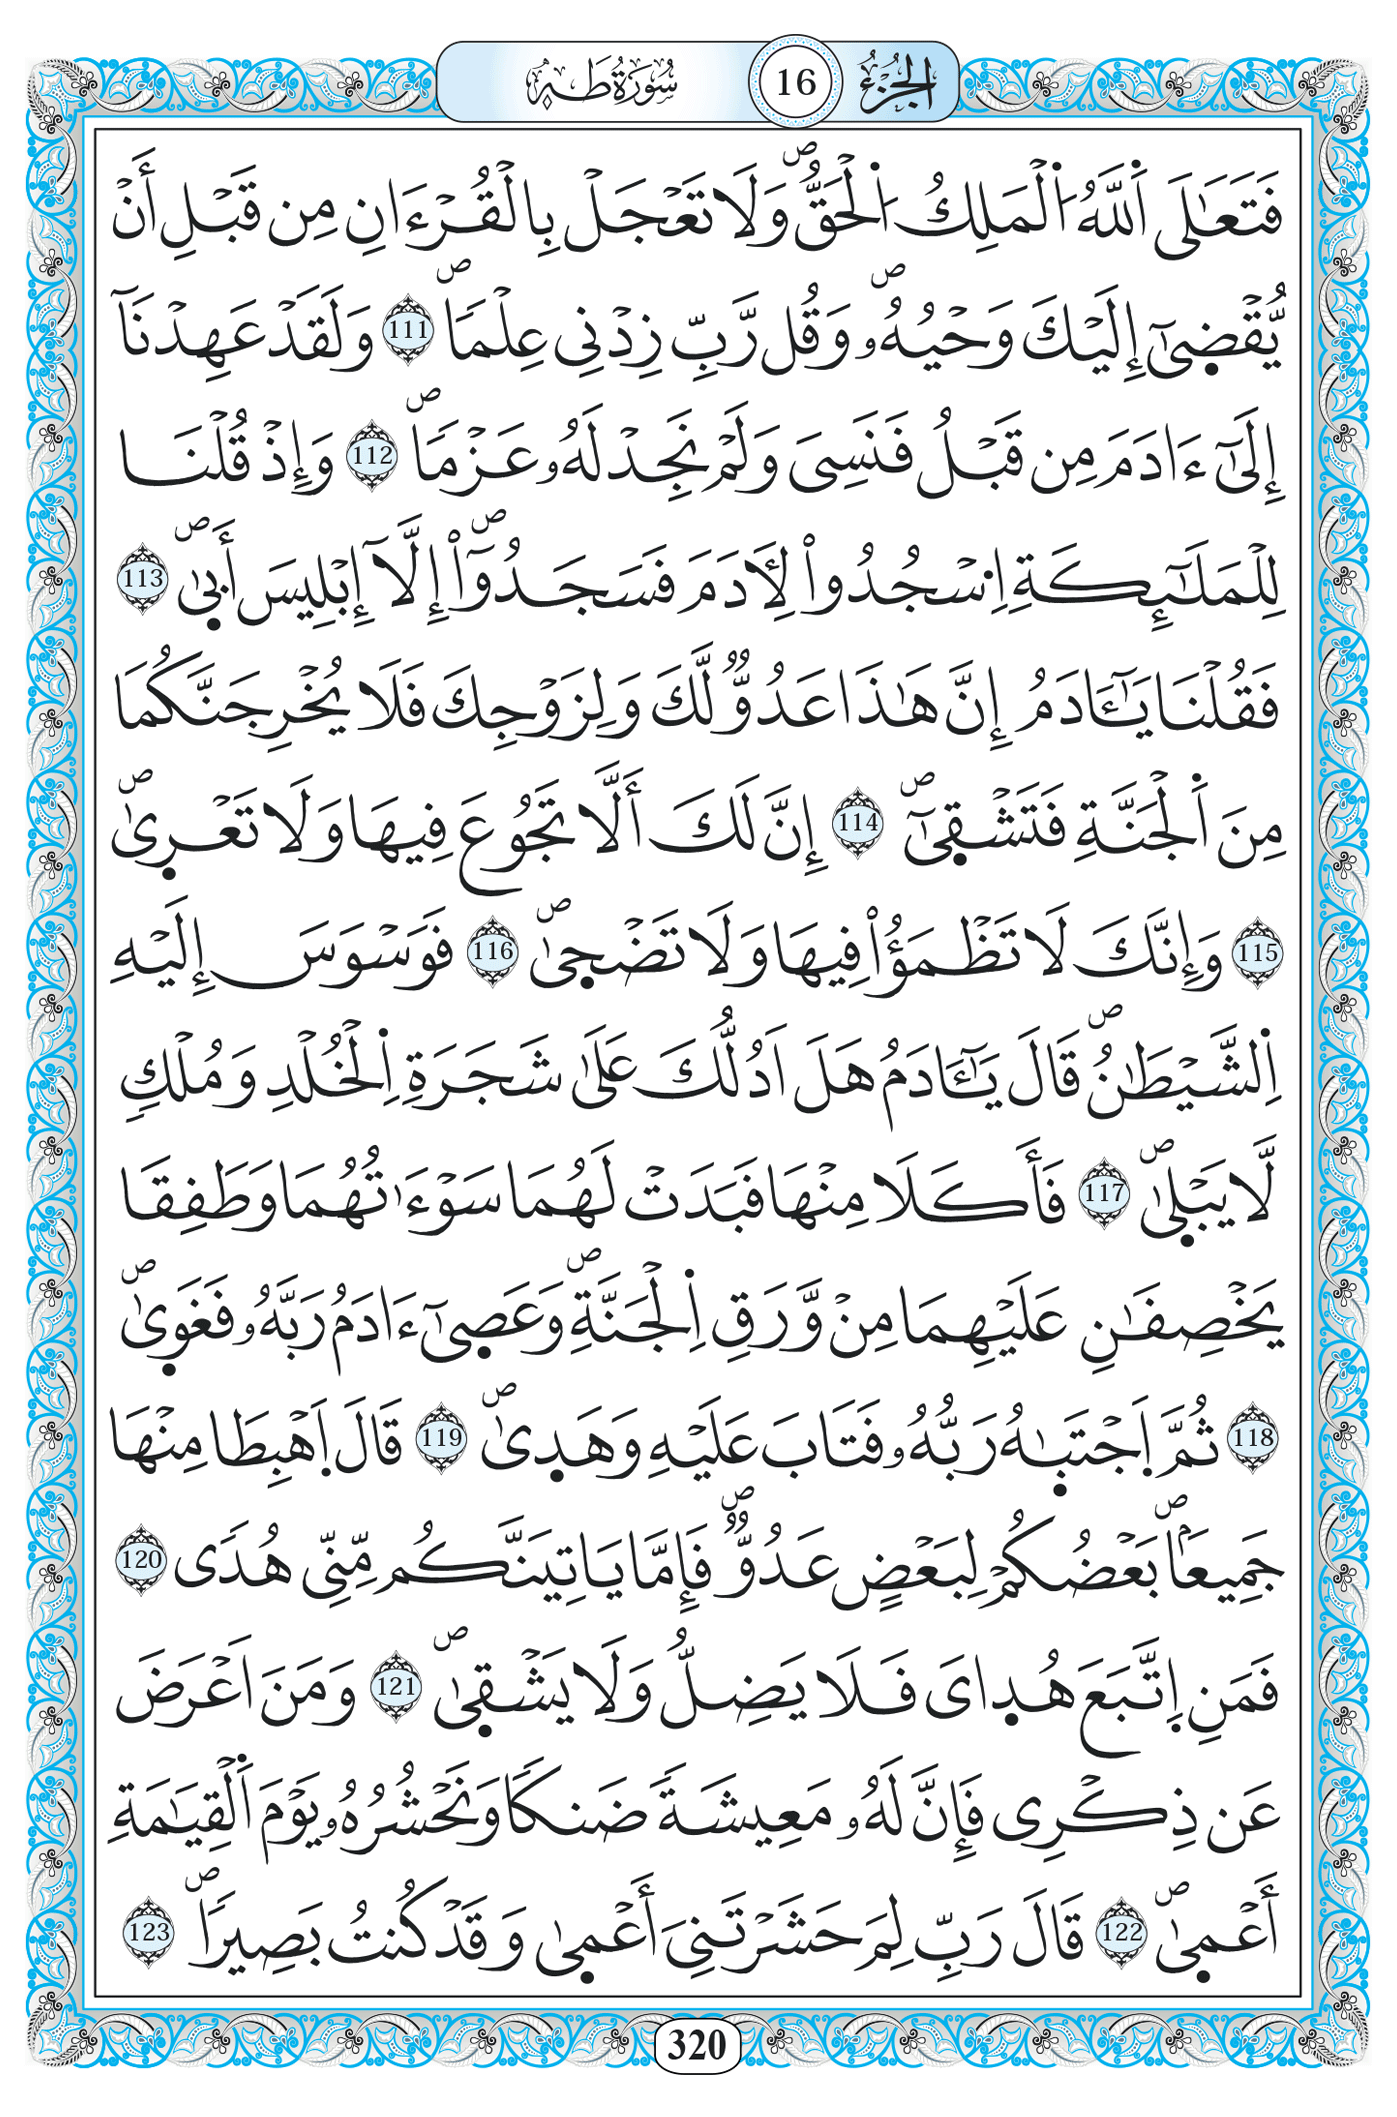 الجزء 16 سورة طه
فَتَعَٰلَى اَ۬للَّهُ اُ۬لْمَلِكُ اُ۬لْحَقُّۖ وَلَا تَعْجَلْ بِالْقُرْءَانِ مِن قَبْلِ أَنْ
يُّقْضَىٰٓ إِلَيْكَ وَحْيُهُۥۖ وَقُل رَّبِّ زِدْنِى عِلْماٗۖ 111 وَلَقَدْ عَهِدْنَآ
إِلَىٰٓ ءَادَمَ مِن قَبْلُ فَنَسِىَ وَلَمْ نَجِدْ لَهُۥ عَزْماٗۖ 112 وَإِذْ قُلْنَا
لِلْمَلَٰٓئِكَةِ اِ۟سْجُدُواْ لِأَدَمَ فَسَجَدُوٓاْۖ إِلَّآ إِبْلِيسَ أَبىٰۖ 113
فَقُلْنَا يَٰٓـَٔادَمُ إِنَّ هَٰذَا عَدُوّٞ لَّكَ وَلِزَوْجِكَ فَلَا يُخْرِجَنَّكُمَا
مِنَ اَ۬لْجَنَّةِ فَتَشْقىٰٓۖ 114 إِنَّ لَكَ أَلَّا تَجُوعَ فِيهَا وَلَا تَعْرىٰۖ
115 وَإِنَّكَ لَا تَظْمَؤُاْ فِيهَا وَلَا تَضْحىٰۖ 116 فَوَسْوَسَ إِلَيْهِ
اِ۬لشَّيْطَٰنُۖ قَالَ يَٰٓـَٔادَمُ هَلَ اَدُلُّكَ عَلَىٰ شَجَرَةِ اِ۬لْخُلْدِ وَمُلْكٖ
لَّا يَبْلىٰۖ 117 فَأَكَلَا مِنْهَا فَبَدَتْ لَهُمَا سَوْءَٰتُهُمَا وَطَفِقَا
يَخْصِفَٰنِ عَلَيْهِمَا مِنْ وَّرَقِ اِ۬لْجَنَّةِۖ وَعَصىٰٓ ءَادَمُ رَبَّهُۥ فَغَوىٰۖ
118 ثُمَّ اَ۪جْتَبٰهُ رَبُّهُۥ فَتَابَ عَلَيْهِ وَهَدىٰۖ 119 قَالَ اَ۪هْبِطَا مِنْهَا
جَمِيعاَۢۖ بَعْضُكُمْ لِبَعْضٍ عَدُوّٞۖ فَإِمَّا يَاتِيَنَّكُم مِّنِّى هُدٗى 120
فَمَنِ اِ۪تَّبَعَ هُدٜاىَ فَلَا يَضِلُّ وَلَا يَشْقىٰۖ 121 وَمَنَ اَعْرَضَ
عَن ذِكْرِى فَإِنَّ لَهُۥ مَعِيشَةٗ ضَنكاٗ وَنَحْشُرُهُۥ يَوْمَ اَ۬لْقِيَٰمَةِ
أَعْمىٰۖ 122 قَالَ رَبِّ لِمَ حَشَرْتَنِىَ أَعْمىٰ وَقَدْ كُنتُ بَصِيراٗۖ 123
320